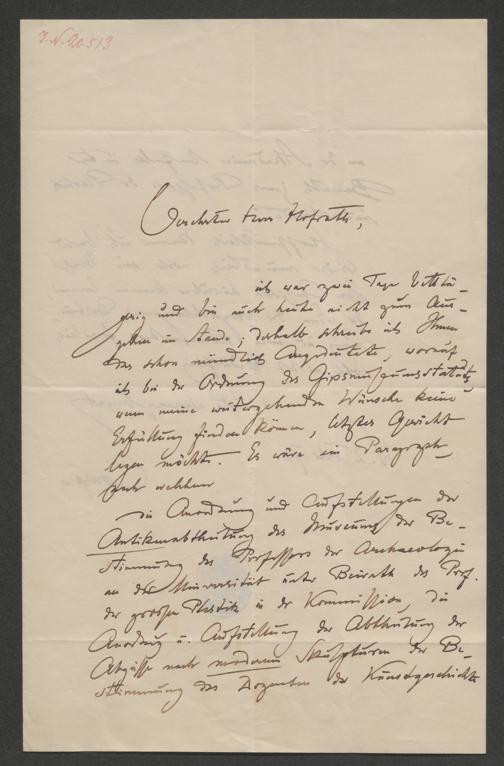 J.N. 20.513
Verehrter Herr Hofrath,
ich war zwei Tage bettlä-
gerig und bin auch heute nicht zum Aus-
gehen im Stande, deshalb schreibe ich Ihnen
das schon mündlich Angedeutete, worauf
ich bei der Ordnung des Gipsmuseumsstatuts,
wenn meine weitergehenden Wünsche keine
Erfüllung finden können, letztes Gewicht
legen möchte. Es wäre ein Paragraph
nach welchem
die Anordnung und Aufstellungen der
Antikenabtheilung des Museums der Be-
stimmung des Professors der Archaeologie
an der Universität unter Beirath des Prof.
der grossen Plastik in der Kommission, die
Anordng u. Aufstellung der Abtheilung der
Abgüsse nach modernen Skulpturen der Be-
stimmung des Dozenten der Kunstgeschichte